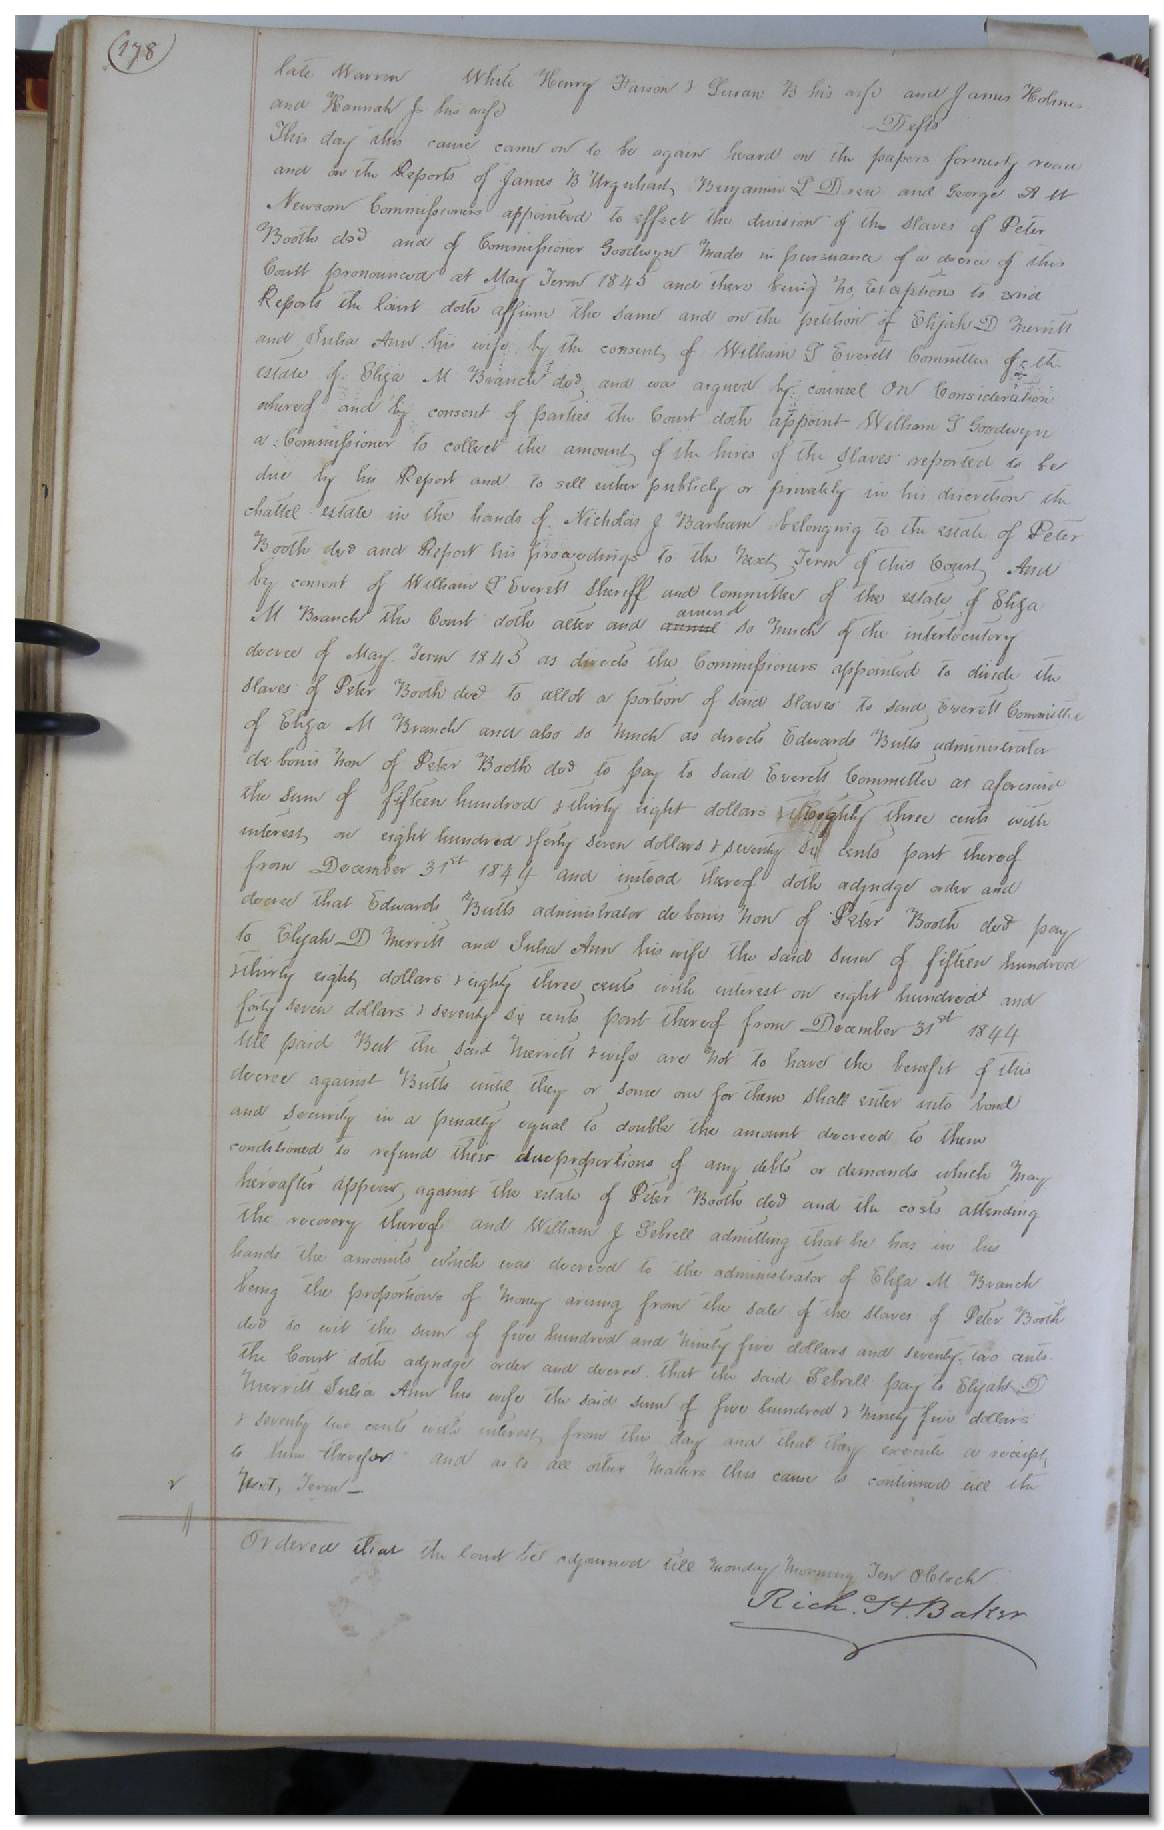 178
late Warren White Henry Faison & Susan B his wife and James Holmes
and Hannah J his wife Defts
This day this cause came on to be again heard on the papers formerly read
and on the Reports of James B Urquhart, Benjamin L Drew and George A W
Newsom Commissioners appointed to effect the division of the slaves of Peter
Booth decd and of Commissioner Goodwyn made in pursuance of a decree of this
Court pronounced at May Term 1845 and there being no Exceptions to said
Reports the Court doth affirm the same and on the petition of Elijah D Merritt
and Julia Ann his wife by the consent of William T Everett Committee of the
estate of Eliza M Branch decd and was argued by counsel On Consideration
whereof and by consent of parties the Court doth appoint William T Goodwyn
a Commissioner to collect the amount of the hires of the slaves reported to be
due by his Report and to sell either publicly or privately in his discretion the
chattel estate in the hands of Nicholas J Barham belonging to the estate of Peter
Booth decd and Report his proceedings to the Next Term of this Court And
by consent of William T Everett Sheriff and Committee of the estate of Eliza
M Branch the Court doth alter and annul amend so much of the interlocutory
decree of May Term 1845 as directs the Commissioners appointed to divide the
slaves of Peter Booth decd to allot a portion of said slaves to said Everett Committee
of Eliza M Branch and also so much as directs Edwards Butts administrator
de bonis non of Peter Booth decd to pay to said Everett Committee as aforesaid
the sum of fifteen hundred & thirty eight dollars & eighty three cents with
interest on eight hundred & forty seven dollars & seventy six cents part thereof
from December 31st 1844 and instead thereof doth adjudge order and
decree that Edwards Butts administrator de bonis non of Peter Booth decd pay
to Elijah D Merritt and Julia Ann his wife the said sum of fifteen hundred
& thirty eight dollars & eighty three cents with interest on eight hundred and
forty seven dollars & seventy six cents part thereof from December 31st 1844
till paid But the said Merritt & wife are not to have the benefit of this
decree against Butts until they or some one for them shall enter into bond
and security in a penalty equal to double the amount decreed to them
conditioned to refund their due proportions of any debts or demands which may
hereafter appear against the estate of Peter Booth decd and the costs attending
the recovery thereof and William J Sebrell admitting that he has in his
hands the amounts which was decreed to the administrator of Eliza M Branch
being the proportions of money arising from the sale of the slaves of Peter Booth
decd to wit the sum of five hundred and ninety five dollars and seventy two cents
the Court doth adjudge order and decree that the said Sebrell pay to Elijah D
Merritt Julia Ann his wife the said sum of five hundred & ninety five dollars
& seventy two cents with interest from this day and that they execute a receipt
to him therefor and as to all other matters this cause is continued till the
Next Term
Ordered that the Court be adjourned till Monday Morning Ten OClock
Rich. H. Baker